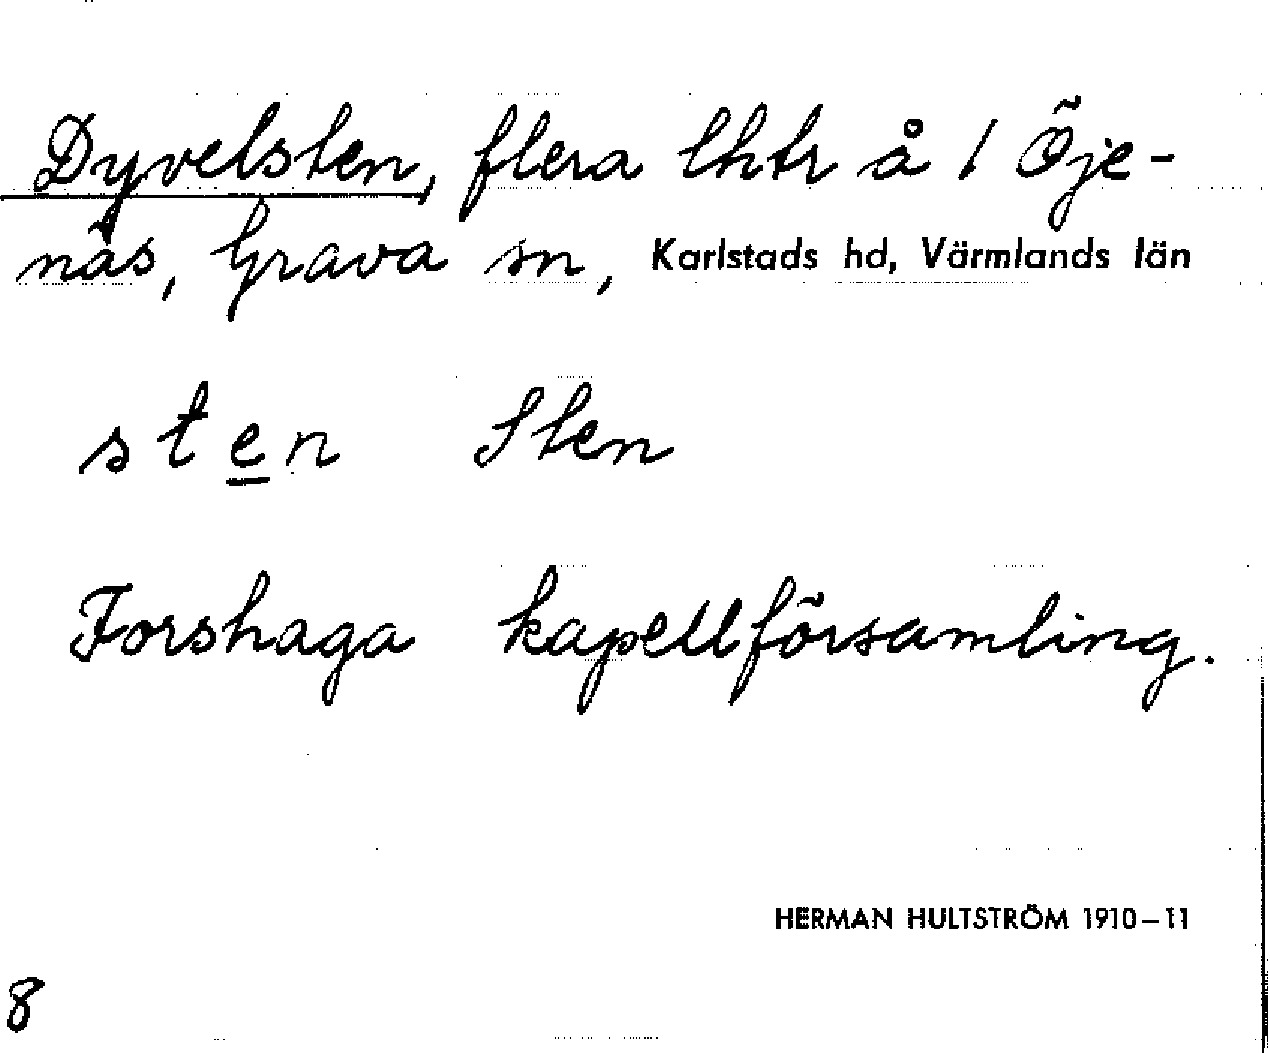 Dyvelsten, flera lhtr å 1 Öje-
näs, Grava sn, Karlstads hd, Värmlands län
sten Sten
Forshaga kapellförsamling.
HERMAN HULTSTRÖM 1910–11
8